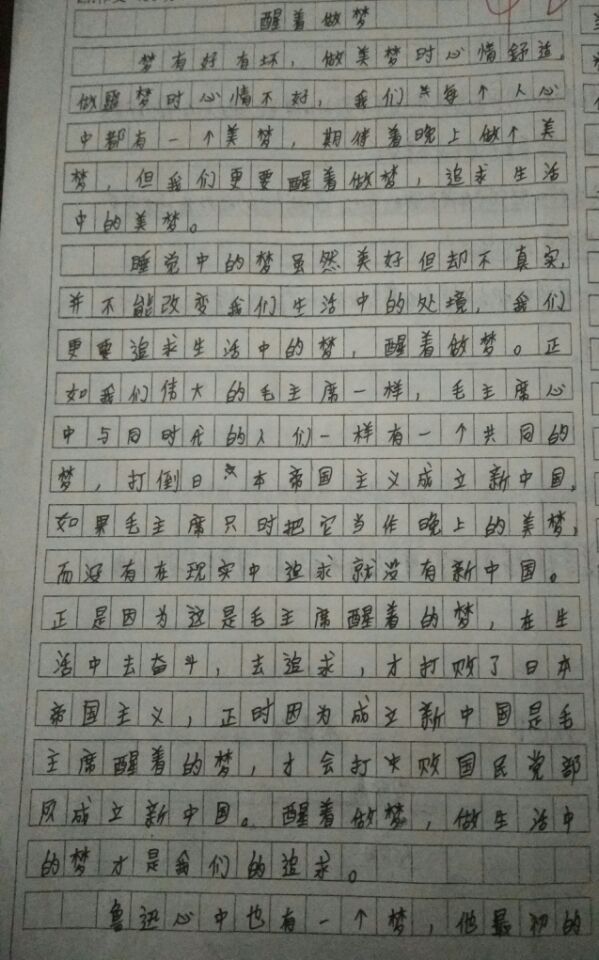 醒着做梦
梦有好有坏，做美梦时心情舒适，
做噩梦时心情不好，我们每个人心
中都有一个美梦，期待着晚上做个美
梦，但我们更要醒着做梦，追求生活
中的美梦。
睡觉中的梦虽然美好但却不真实，
并不能改变我们生活中的处境，我们
更要追求生活中的梦，醒着做梦。正
如我们伟大的毛主席一样，毛主席心
中与同时代的人们一样有一个共同的
梦，打倒日本帝国主义成立新中国，
如果毛主席只时把它当作晚上的美梦，
而没有在现实中追求就没有新中国。
正是因为这是毛主席醒着的梦，在生
活中去奋斗，去追求，才打败了日本
帝国主义，正时因为成立新中国是毛
主席醒着的梦，才会打败国民党部
队成立新中国。醒着做梦，做生活中
的梦才是我们的追求。
鲁迅心中也有一个梦，他最初的